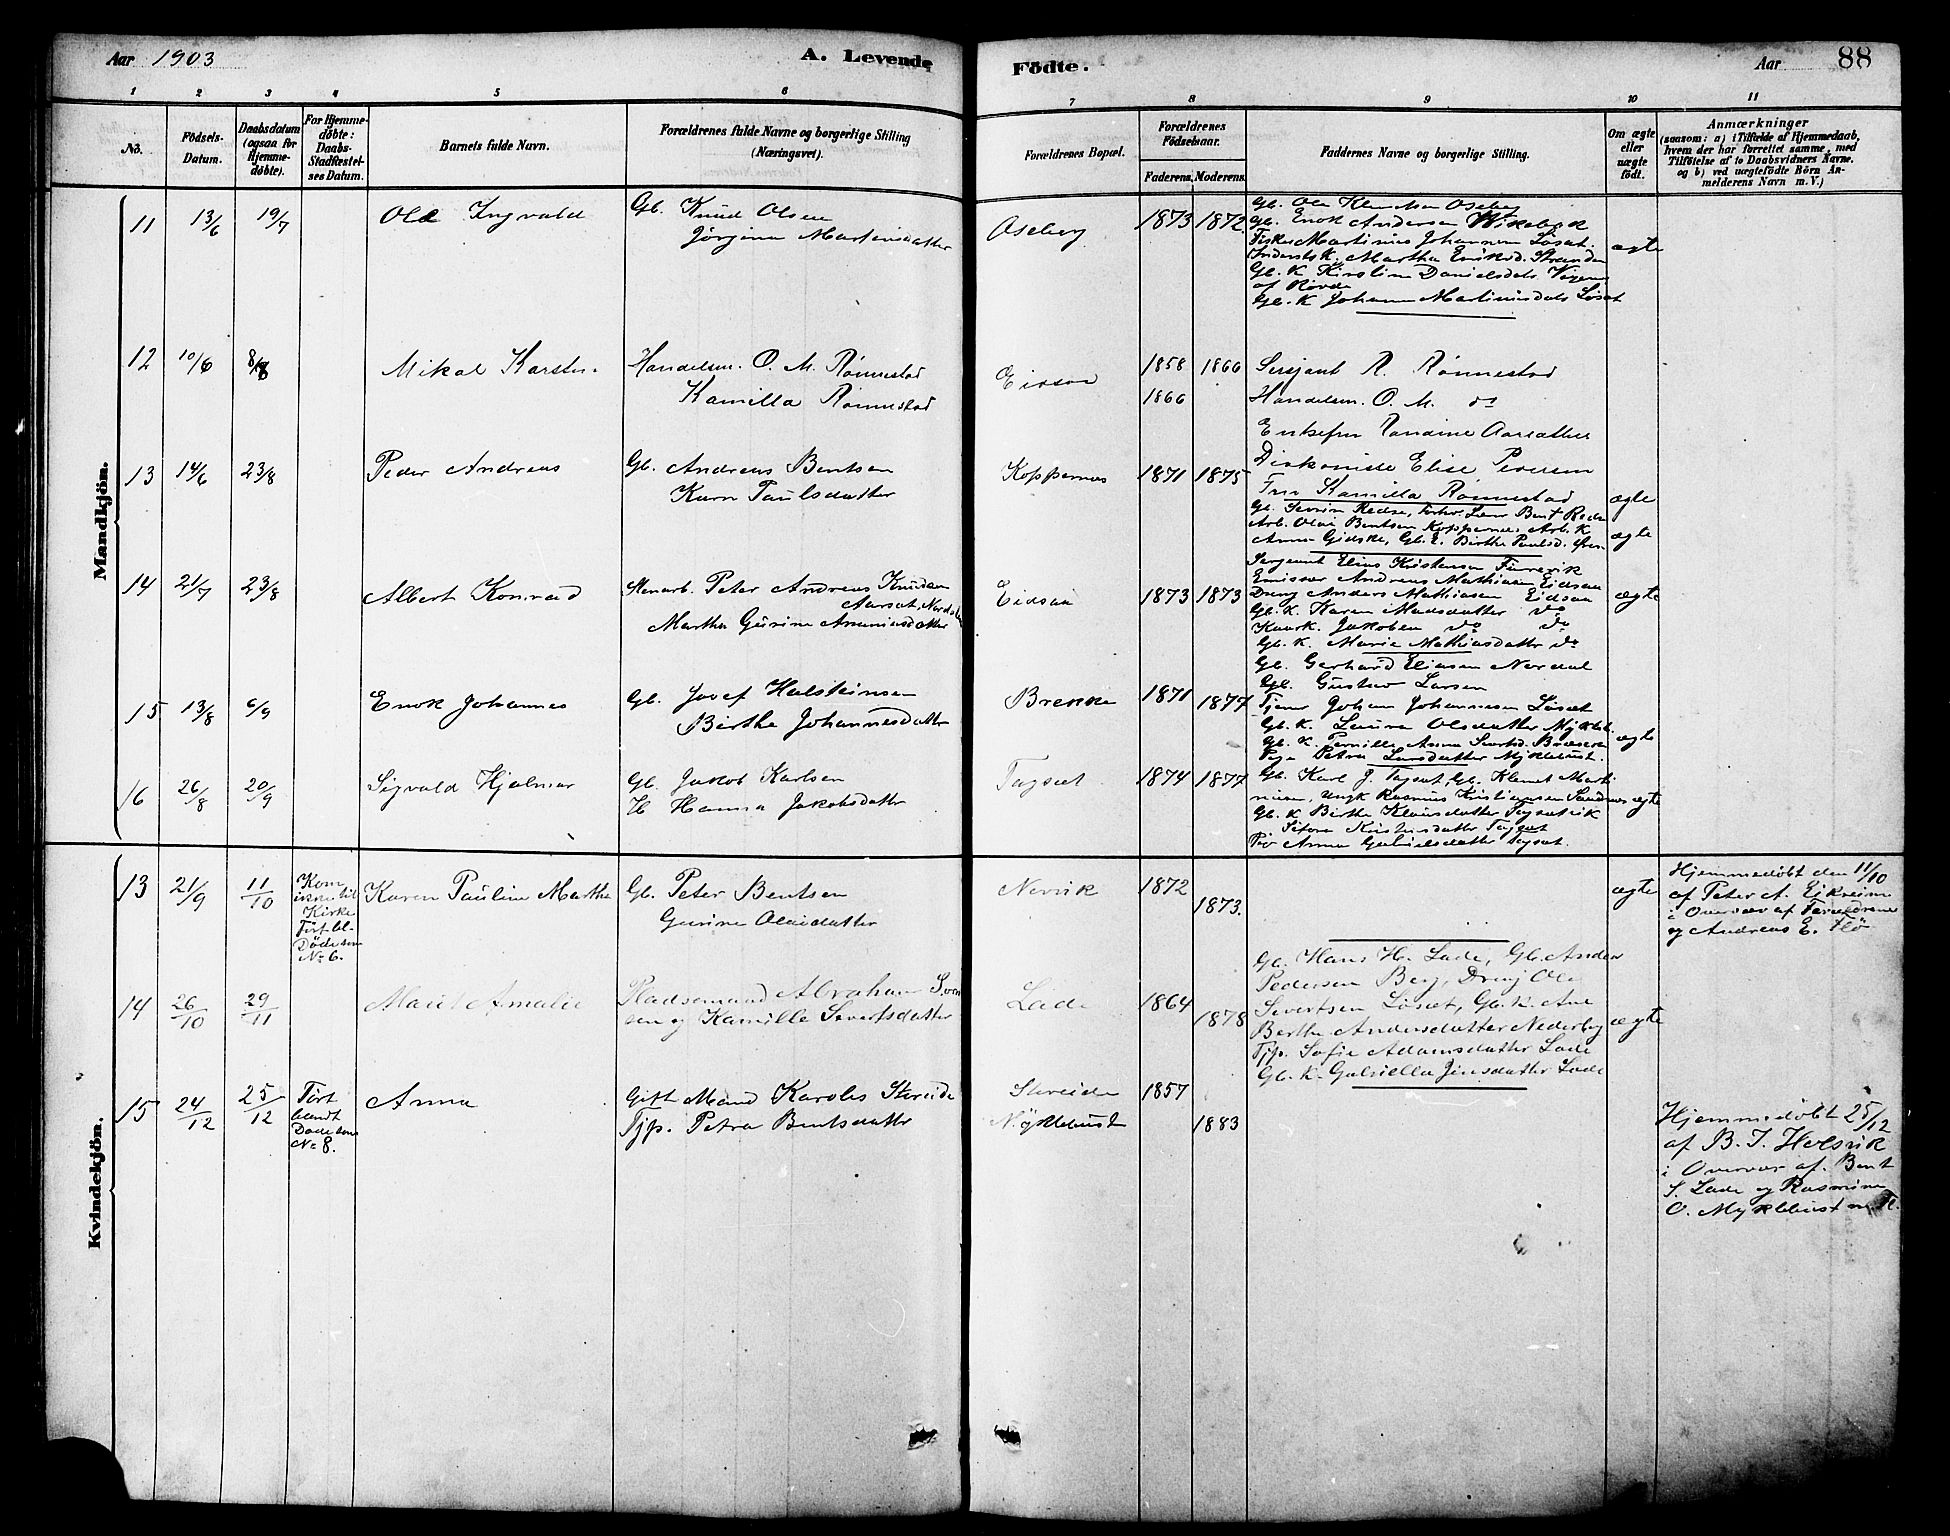 Aar 1903
A. Levende
Födte.
Aar
88
1 2 3 4 5 6 7 8 9 10 11
No.
Födsels-Datum.
Daabsdatum (ogsaa for Hjemme-döbte).
For Hjemme-döbte: Daabs-Stadfæstel-ses Datum.
Barnets fulde Navn.
Forældrenes fulde Navne og borgerlige Stilling (Næringsvei).
Forældrenes Bopæl.
Forældrenes Födselsaar.
Faderens. Moderens.
Faddernes Navne og borgerlige Stilling.
Om ægte eller uægte födt.
Anmærkninger
(saasom: a) i Tilfælde af Hjemmedaab, hvem der har forrettet samme, med Tilföielse af to Daabsvidners Navne. og b) ved uægtefödte Börn An-melderens Navn m. V.)
Mandkjön.
11 13/6 19/7 Ole Ingvald Gb. Knud Olsen
Jørgine Martinsdatter
Aseberg 1873 1872
Gb. Enok Andersen
Fisker Martinus Johannesen Løset.
ægte
Gb. K. Kirstine Danielsdatr.
af Rovde
Gb. K Johanne Martinusdatr Løset
12 10/6 8/8 Mikal Karsten. Handelsm. O. M. Rönnestad
Kamilla Rönnestad
Eidsaa 1858 1866
1866
Sersjant R. Rönnestad
Handelsm. O. M. do
Enkefru Randine Aarsæther
Diakonisse Elise Petersen
Fru Kamilla Rönnestad
ægte
13 14/6 23/8 Peder Andreas Gb. Andreas Bentsen
Karn Paulsdatter
Koppernæs 1871 1875
Arb. Olai Bentsen Koppernæs, Arb. K
Anna Gidske, Gb. E. Birthe Paulsd.
ægte
14 21/7 23/8 Albert Konrad Peter Andreas Knudsen
Aarset,
Martha Gurine
Eidsaa 1873 1873
Sergeant Elias Kristensen
Emissær Andreas Mathiasen Eidsaa
Dreng Anders Mathiasen Eidsaa
Gb. K. Karen Madsdatter do
Jakobea do do
Gb. K. Marie Mathiasdatter do
ægte
15 13/8 6/9 Enok Johannes Gb. Josef Halsteinsen
Birthe Johannesdatter
Brekke 1871 1877
Gb. Gerhard Eliasen Nordal
Gb. Gustav Larsen
Tjener Johan Johannesen Löset
Gb. K. Laura Olsdatter Myklebust
Gb. K. Pernille Anna
Pige Petra Larsdatter Myklebust.
ægte
16 26/8 20/9 Sigvald Hjalmar Gb. Jakob Karlsen
H. Hanna Jakobsdatter
Tagset 1874 1877
Gb. Karl J. Tagset, Gb. Klemet Marti
nusen, Ungk Rasmus Kristiansen Sandnæs
Gb. K Birthe
Kristensdatter Tagset
Anna Gabrielsdatter Tagset.
ægte
Kvindekjön.
13 21/9 11/10 Kom
ikke til
Kirke
Fört bl.
Döde som
No 6.
Karen Pauline Marthe Gb. Peter Bentsen
Gurine Olaidatter
Nervik 1872
1873.
ægte
Hjemmedøbt den 11/10
af Peter A. Eikrem
i Overvær af Forældrene
og Andreas E. Flö
14 26/10 29/11 Marit Amalie Pladsemand Abraham Iver
sen og Kamille Severtsdatter
Lade 1864
1878
Gb. Hans H. Lade, Gb. Anders
Pedersen Berg, Dreng Ole
Severtsen Løset, Gb. K. Ane
Berthe Andersdatter Nederberg
Tjp. Sofie Adamsdatter Lade
Gb. K. Gabriella Jensdatter Lade
ægte
15 24/12 25/12 Fört
blandt
Døde som
No 8.
Anna Gift Mand Karolus Støreide
Tjp. Petra Bentsdatter
Støreide 1857
Myklebust 1883
Hjemmedøbt 25/12
af B. J. Holsvik
i Overvær af. Bent
S. Lade og Rasmine
O. Myklebust